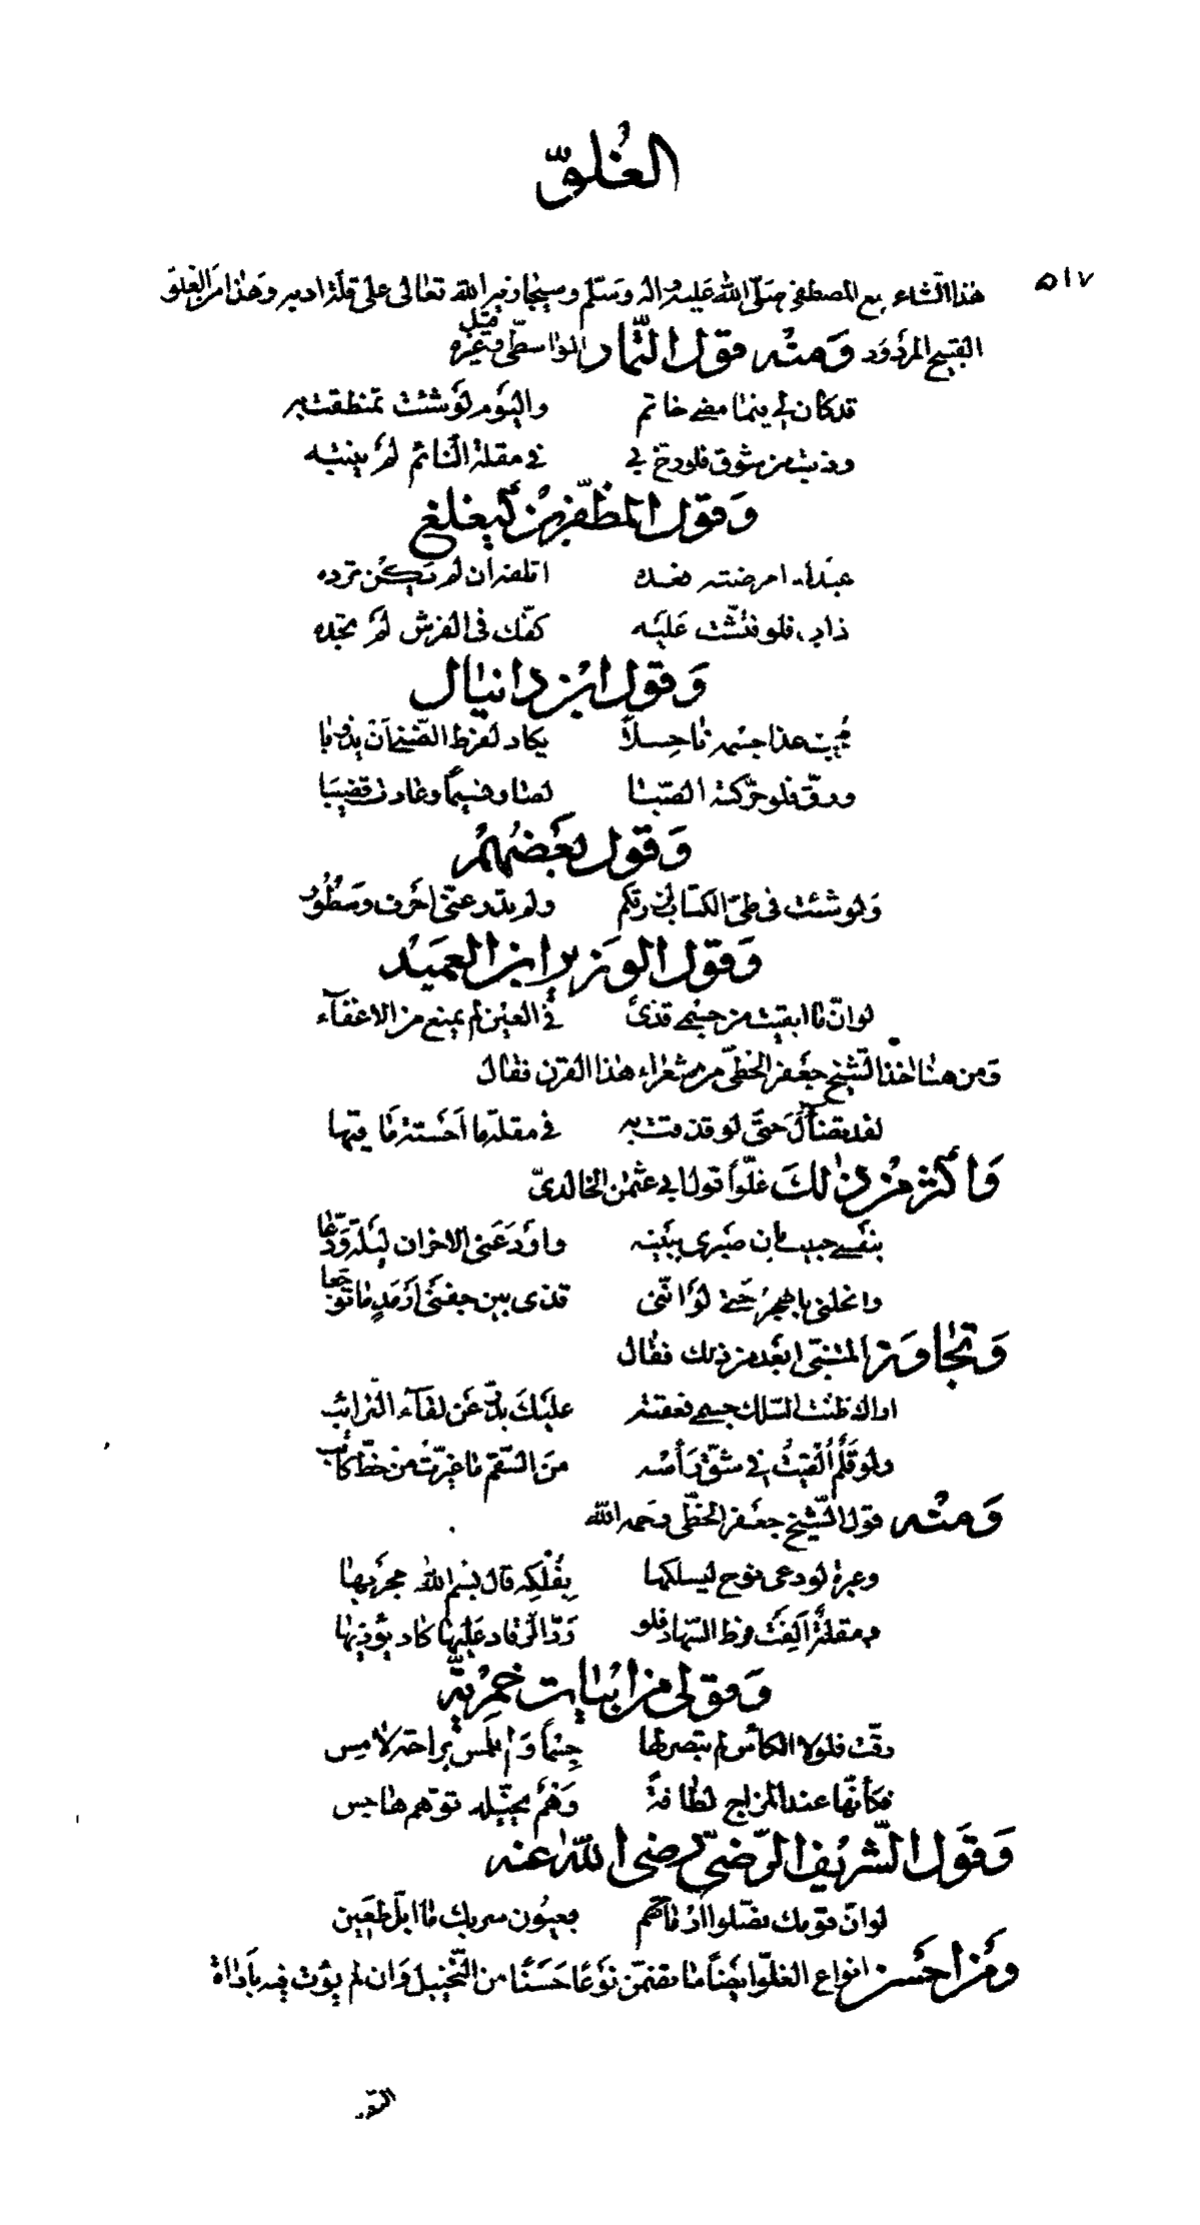 الغُلوّ
٥١٧
هٰذا الشاعر مع المصطفى صَلّى اللهُ عَليه وآله وسَلّم وسيجازيه الله تعالى على قلة ادبه وهَذا من الغلوّ
القبيح المردُود وَمنْه قول التمّار الواسطى وقيل غيره
قد كان لي فيما مضى خاتم واليوم لوْ شئت تمنطقت به
وذبت من شوق فلو زج بي في مقلة النائم لم ينتبه
وَقول المظفّر بن كيغلغ
عبدك امرضته فعده اتلفته ان لم تكن ترده
ذاب فلو فتّشت عَليه كفّك فى الفرش لم تجده
وَقول ابن دانيال
محبّ غذا جسمه ناحِلاً يكاد لفرط الضّنى اَن يذوبا
ورقّ فلو حرّكته الصّبا لصار نسيمًا وعادت قضيبَا
وَقول بعضهُمْ
وَلو شئت فى طىّ الكتاب لزرتكم ولم يدر عنّى احرف وسُطُور
وَقول الوَزير ابن العَميْد
لو انّ ما ابقيت من جسمى قذىً في العين لم يمنع من الاغفآء
وَمن هنا اخذ الشيخ جعفر الخطّى من شعراء هذا القرن فقال
لقد تضآلَ حتّى لو قذفت به في مقلة ما اَحسّته مَا فيها
وَاكثر مْن ذلكَ غلوّا قول ابي عثمٰن الخالدىّ
بنفسى حبيب بان صَبرى ببَينه واوْدَعَنى الاحزان ليلة ودّعا
وانحلنى بالهجر حَتى لوْ انّنى قذى بين جفنَى ارْمَدٍ ما توجّعا
وَتجاوَز المتنبّى ابعَد من ذلك فقال
اراك ظننت السّلك جسمى فعقته عليْكَ بدرّ عَن لقآء الترائب
ولو قَلمٌ اُلْقيتُ في شقّ رَأسه منَ السّقم ما غيّرتُ من خطّ كاتب
وَمنْه قول الشّيخ جعفر الخطّى رحمه الله
وعبرة لو دعى نوح ليسلكها بِفُلْكِه قال بسم الله مجريها
ومقلةٌ اَلِفَتْ فرط السّهاد فلو رَدّ الرقاد عَليها كاد يؤذيها
وَقولى من ابْيات خمْريّة
رقّت فلولا الكاس لم تبصر لها جِسْمًا وَلم تلمس براحة لامس
فكأنّها عند المزاج لطافةً وَهْمٌ يخيّله توهّم هاجس
وَقَول الشّريف الرّضىّ رضى اللّٰه عنه
لو انّ قومك نصّلوا ارْماحهم بعيون سربك ما ابلّ طَعين
وَمْن احْسن انواع الغلوّ ايضًا ما تضمّن نوْعًا حَسَنًا من التّخييل وَان لم يؤت فيه باَداة